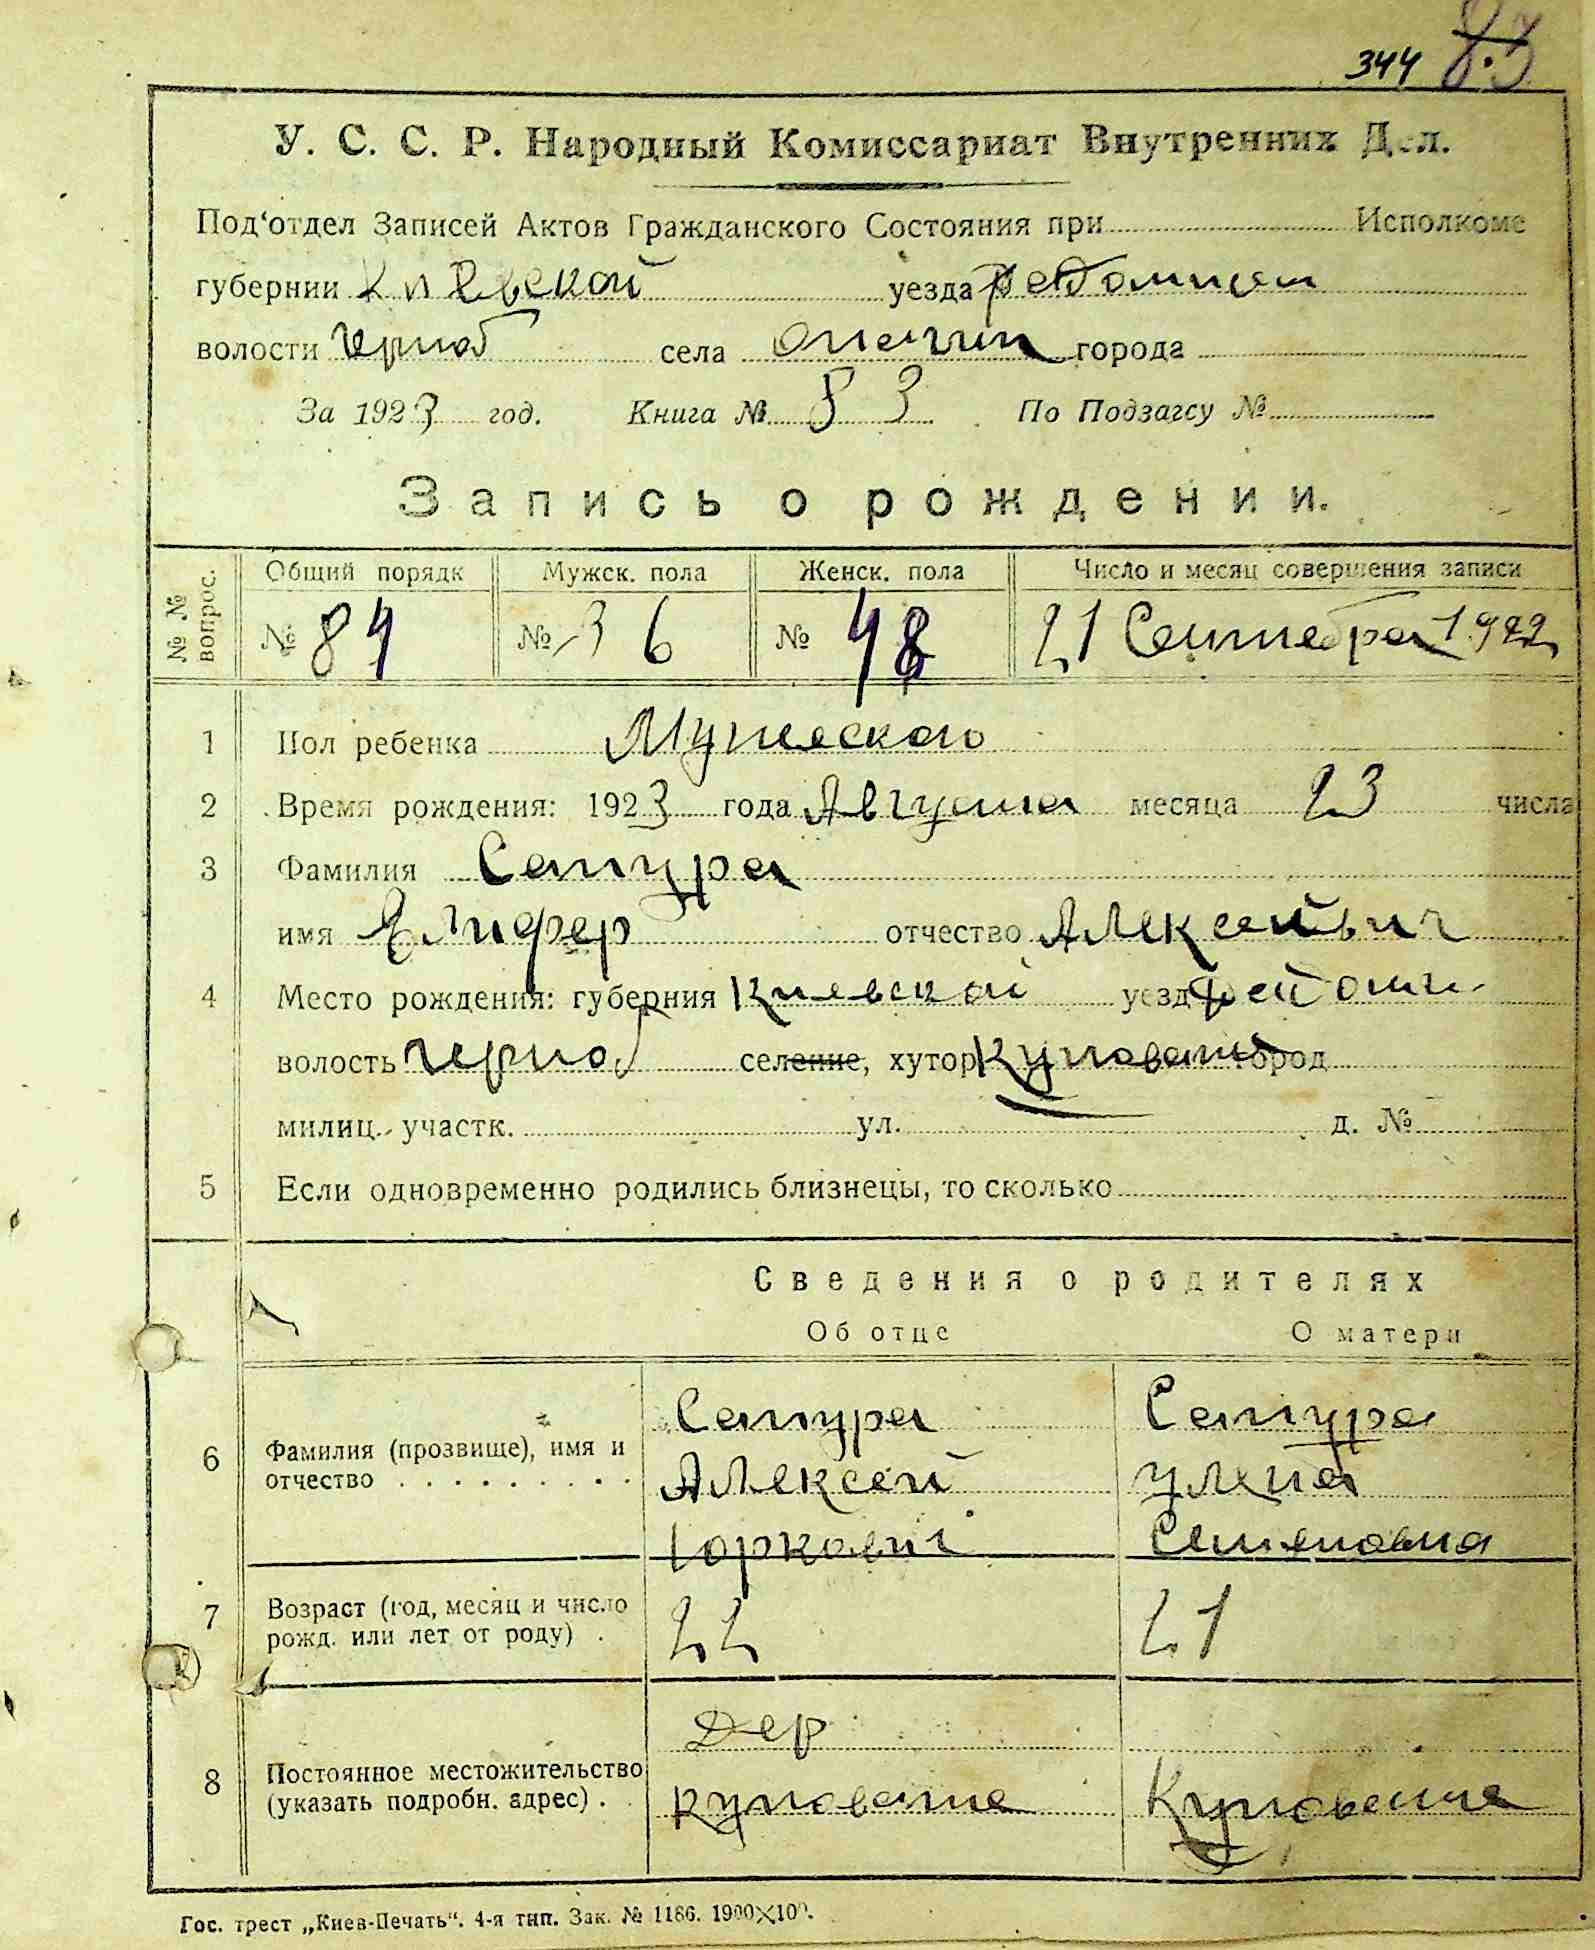 344 83
У. С. С. Р. Народный Комиссариат Внутренних Дел.
Под‘отдел Записей Актов Гражданского Состояния при Исполкоме
губернии Киевской уезда
волости Черноб села города
За 1923 год. Книга № 83 По Подзагсу №
Запись о рождении.
№ № вопрос. Общий порядк Мужск. пола Женск. пола Число и месяц совершения записи
№ 84 № 36 № 48 21 Сентебра 1922
1 Пол ребенка Мужеского
2 Время рождения: 1923 года Августа месяца 23 числа
3 Фамилия Сапура
имя Елифер отчество Алексейвич
4 Место рождения: губерния Киевской уезд
волость Черноб селение, хутор Куповате город
милиц. участк. ул. д. №
5 Если одновременно родились близнецы, то сколько
Сведения о родителях
Об отце О матери
6 Фамилия (прозвище), имя и отчество Сапура Сапура
Алексей Улена
Юркович Семеновна
7 Возраст (год, месяц и число рожд. или лет от роду) . 22 21
8 Постоянное местожительство (указать подробн. адрес) . Дер
Куповате Куповате
Гос. трест „Киев-Печать“. 4-я тип. Зак. № 1186. 1900×100.